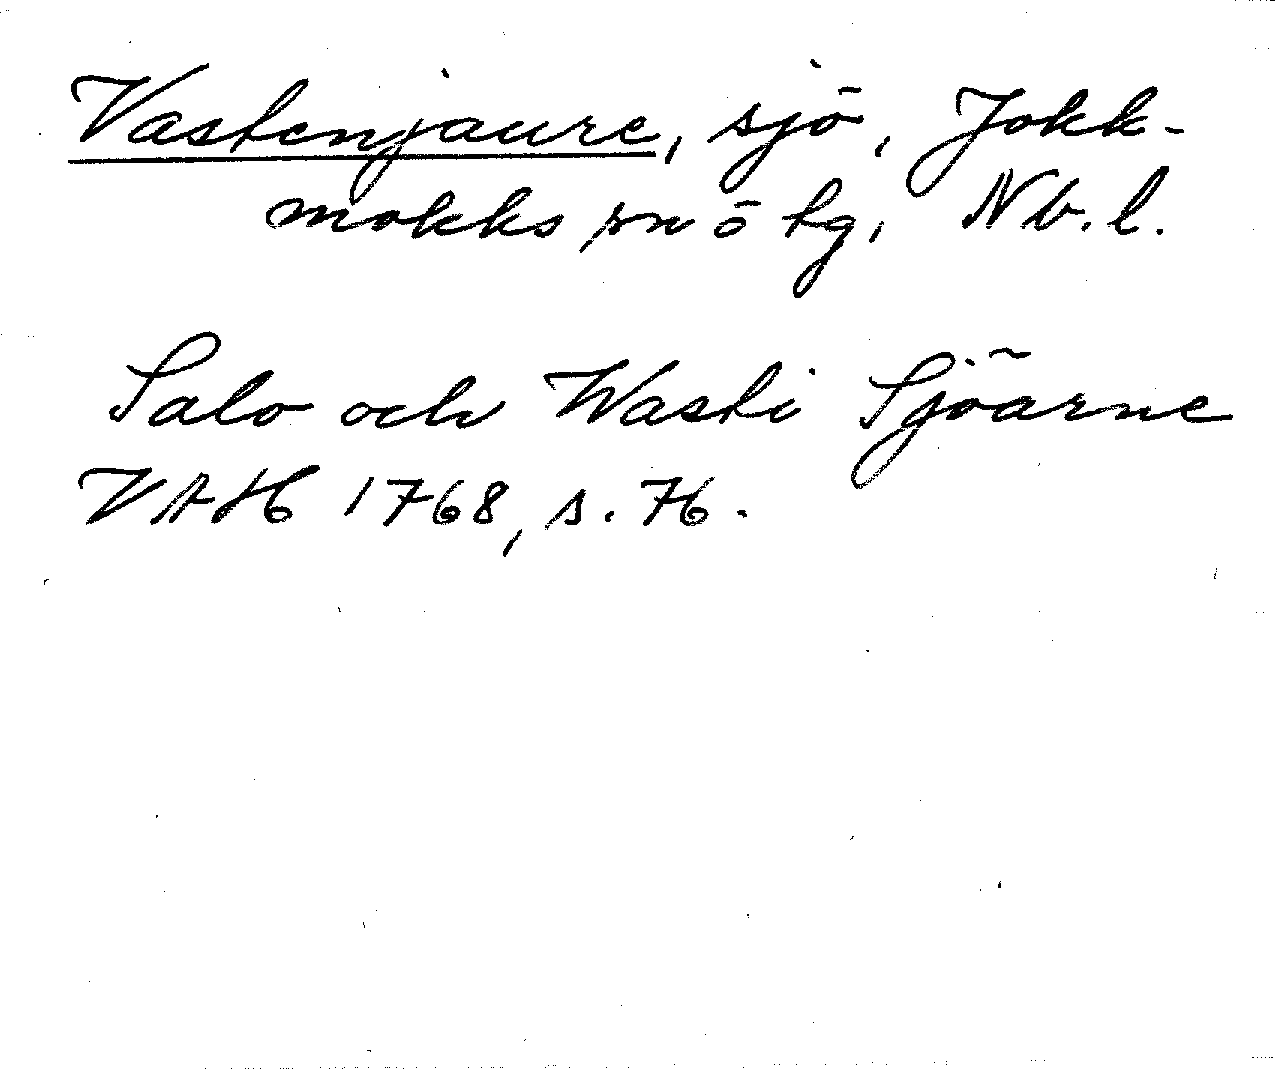 Vastenjaure, sjö, Jokk-
mokks sn o tg, Nb.l.
Salo och Wasti Sjöarne
VAH 1768, s. 76.